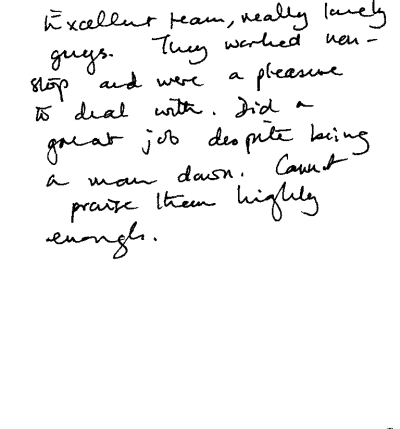 Excellent team, really lovely
guys. They worked non-
stop and were a pleasure
to deal with. Did a
great job despite being
a man down. Cannot
praise them highly
enough.